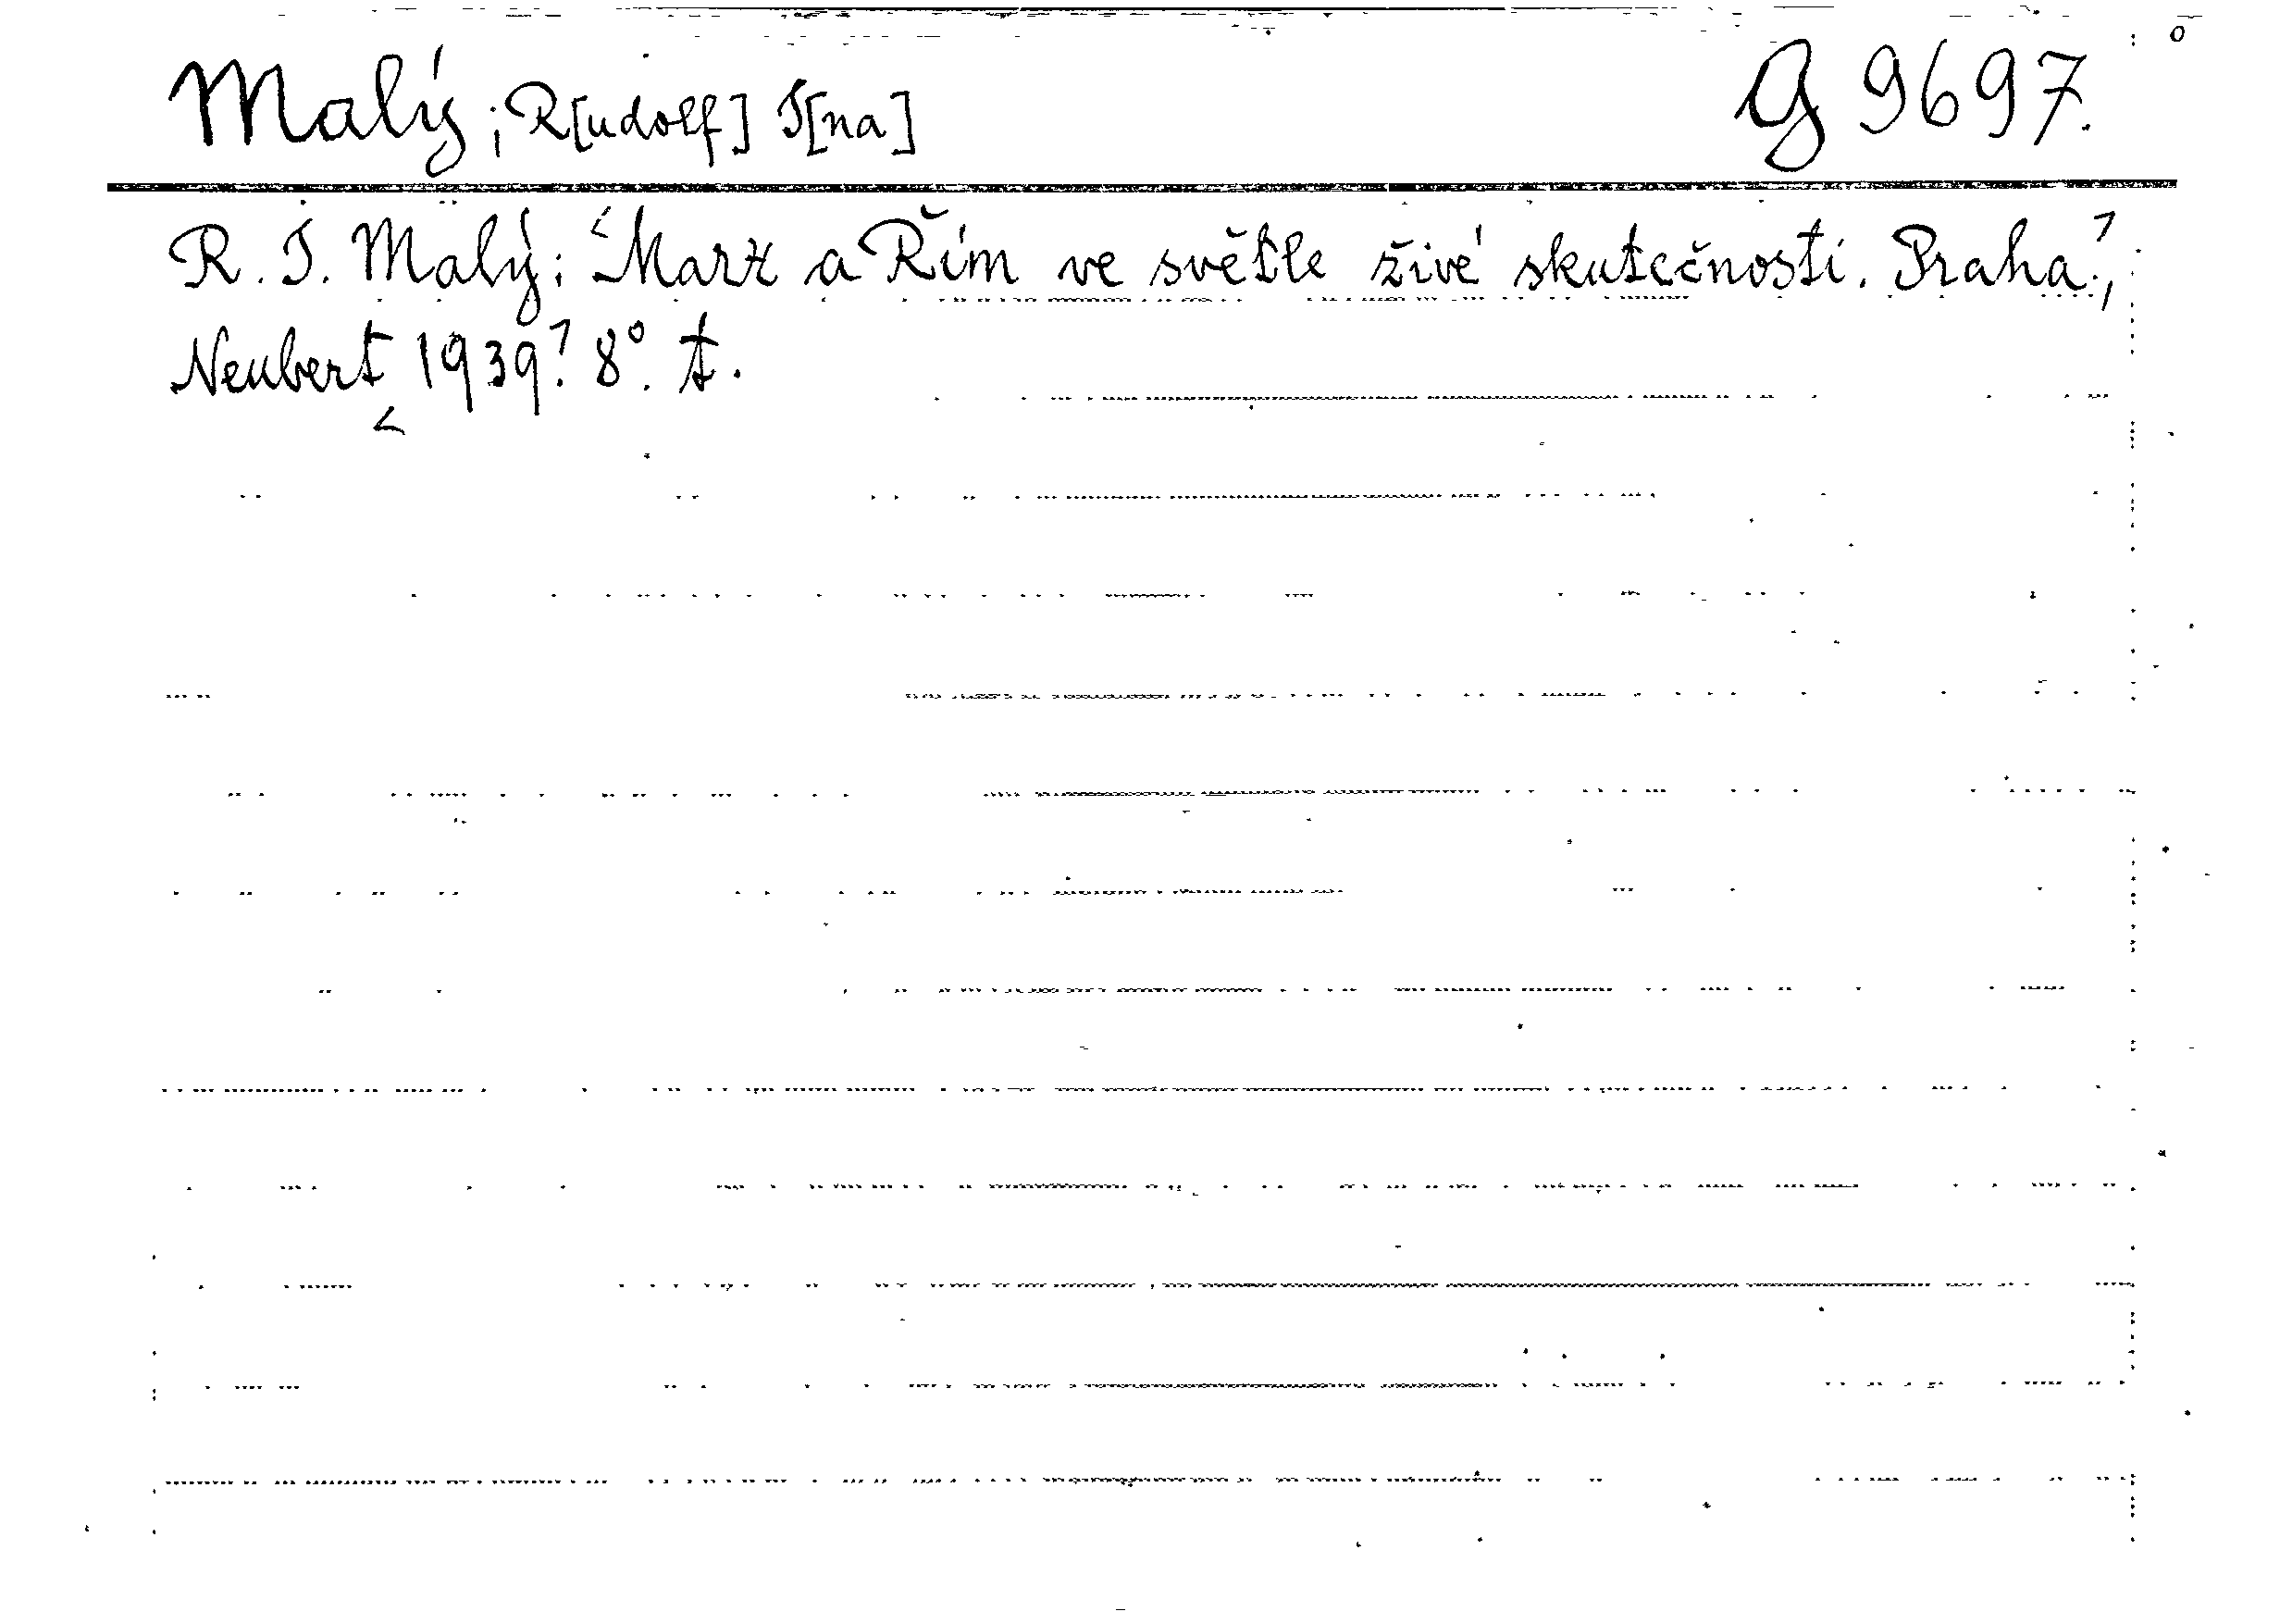 Malý, R[udolf] I[na] G 9697.
R. I. Malý: Marx a Řím ve světle živé skutečnosti. Praha,
Neubert 1939. 8°. t.